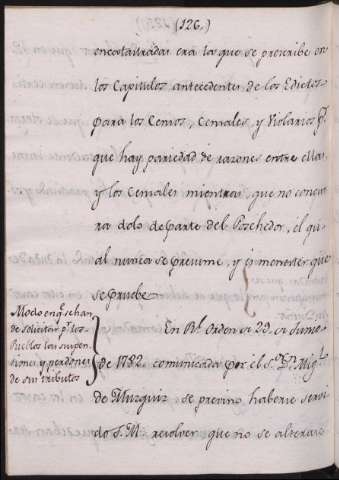 (126.)
encastastradas era lo que se prescribe en
los Capitulos antecedentes de los Edictos
para los Censos, Censales y Violarios p.r
que hay pariedad de razones entre ellas
y los Censales mientras, que no concur
ra dolo de parte del Posehedor, el qu
al nunca se presume, y es menester que
se pruebe
Modo enq.e sehan
de solicitar p.r los
Pueblos las suspen
siones y perdones
de sus tributos
En R.l Orden de 23. de Junio
de 1782. comunicada por el S.r D.n Mig.l
de Muzquiz se previno haberse servi
do S.M. resolver que no se alterase